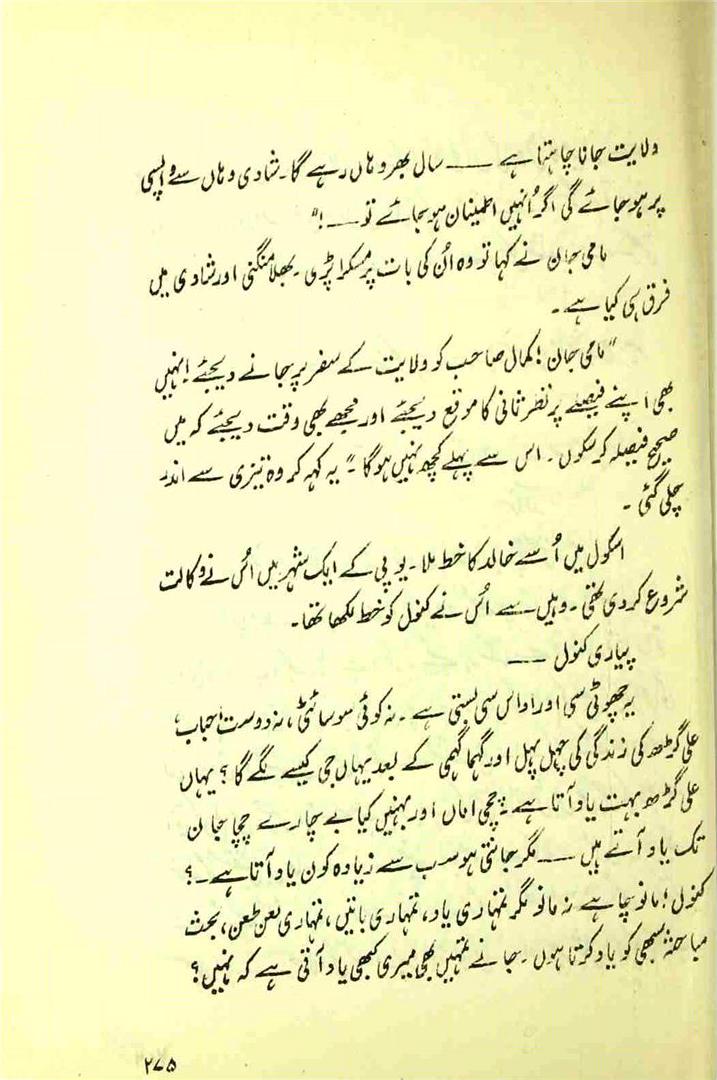 ولایت جانا چاہتا ہے ــــ سال بھر وہاں رہے گا۔ شادی وہاں سے واپسی
پر ہو جائے گی اگر اُنہیں اطمینان ہو جائے تو ــــ!"
مامی جان نے کہا تو وہ اُن کی بات پر مسکرا پڑی۔ بھلا منگنی اور شادی میں
فرق ہی کیا ہے۔
"مامی جان! کمال صاحب کو ولایت کے سفر پر جانے دیجئے! انہیں
بھی اپنے فیصلے پر نظر ثانی کا موقع دیجئے اور مجھے بھی وقت دیجئے کہ میں
صحیح فیصلہ کر سکوں۔ اس سے پہلے کچھ نہیں ہوگا۔" یہ کہہ کر وہ تیزی سے اندر
چلی گئی۔
اسکول میں اُسے خالد کا خط ملا۔ یوپی کے ایک شہر میں اُس نے وکالت
شروع کر دی تھی۔ وہیں سے اُس نے کنول کو خط لکھا تھا۔
پیاری کنول ــــ
یہ چھوٹی سی اور اداس سی بستی ہے۔ نہ کوئی سوسائٹی، نہ دوست احباب،
علی گڑھ کی زندگی کی چہل پہل اور گہما گہمی کے بعد یہاں جی کیسے لگے گا؟ یہاں
علی گڑھ بہت یاد آتا ہے۔ چچی اماں اور بہنیں کیا بے چارے چچا جان
تک یاد آتے ہیں ــــ مگر جانتی ہو سب سے زیادہ کون یاد آتا ہے۔؟
کنول! مانو چاہے نہ مانو مگر تمہاری یاد، تمہاری باتیں، تمہاری لعن طعن، بحث
مباحثہ سبھی کو یاد کرتا ہوں۔ جانے تمہیں بھی میری کبھی یاد آتی ہے کہ نہیں؟
۲۷۵